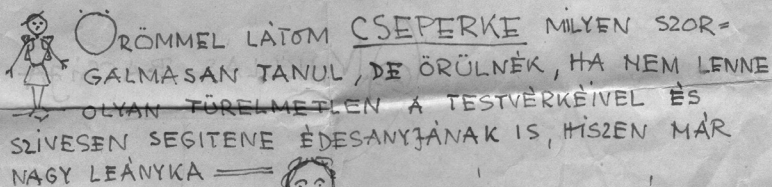 ÖRÖMMEL LÁTOM CSEPERKE MILYEN SZOR=
GALMASAN TANUL, DE ÖRÜLNÉK, HA NEM LENNE
OLYAN TÜRELMETLEN A TESTVÉRKÉIVEL ÉS
SZIVESEN SEGITENE ÉDESANYJÁNAK IS, HISZEN MÁR
NAGY LEÁNYKA